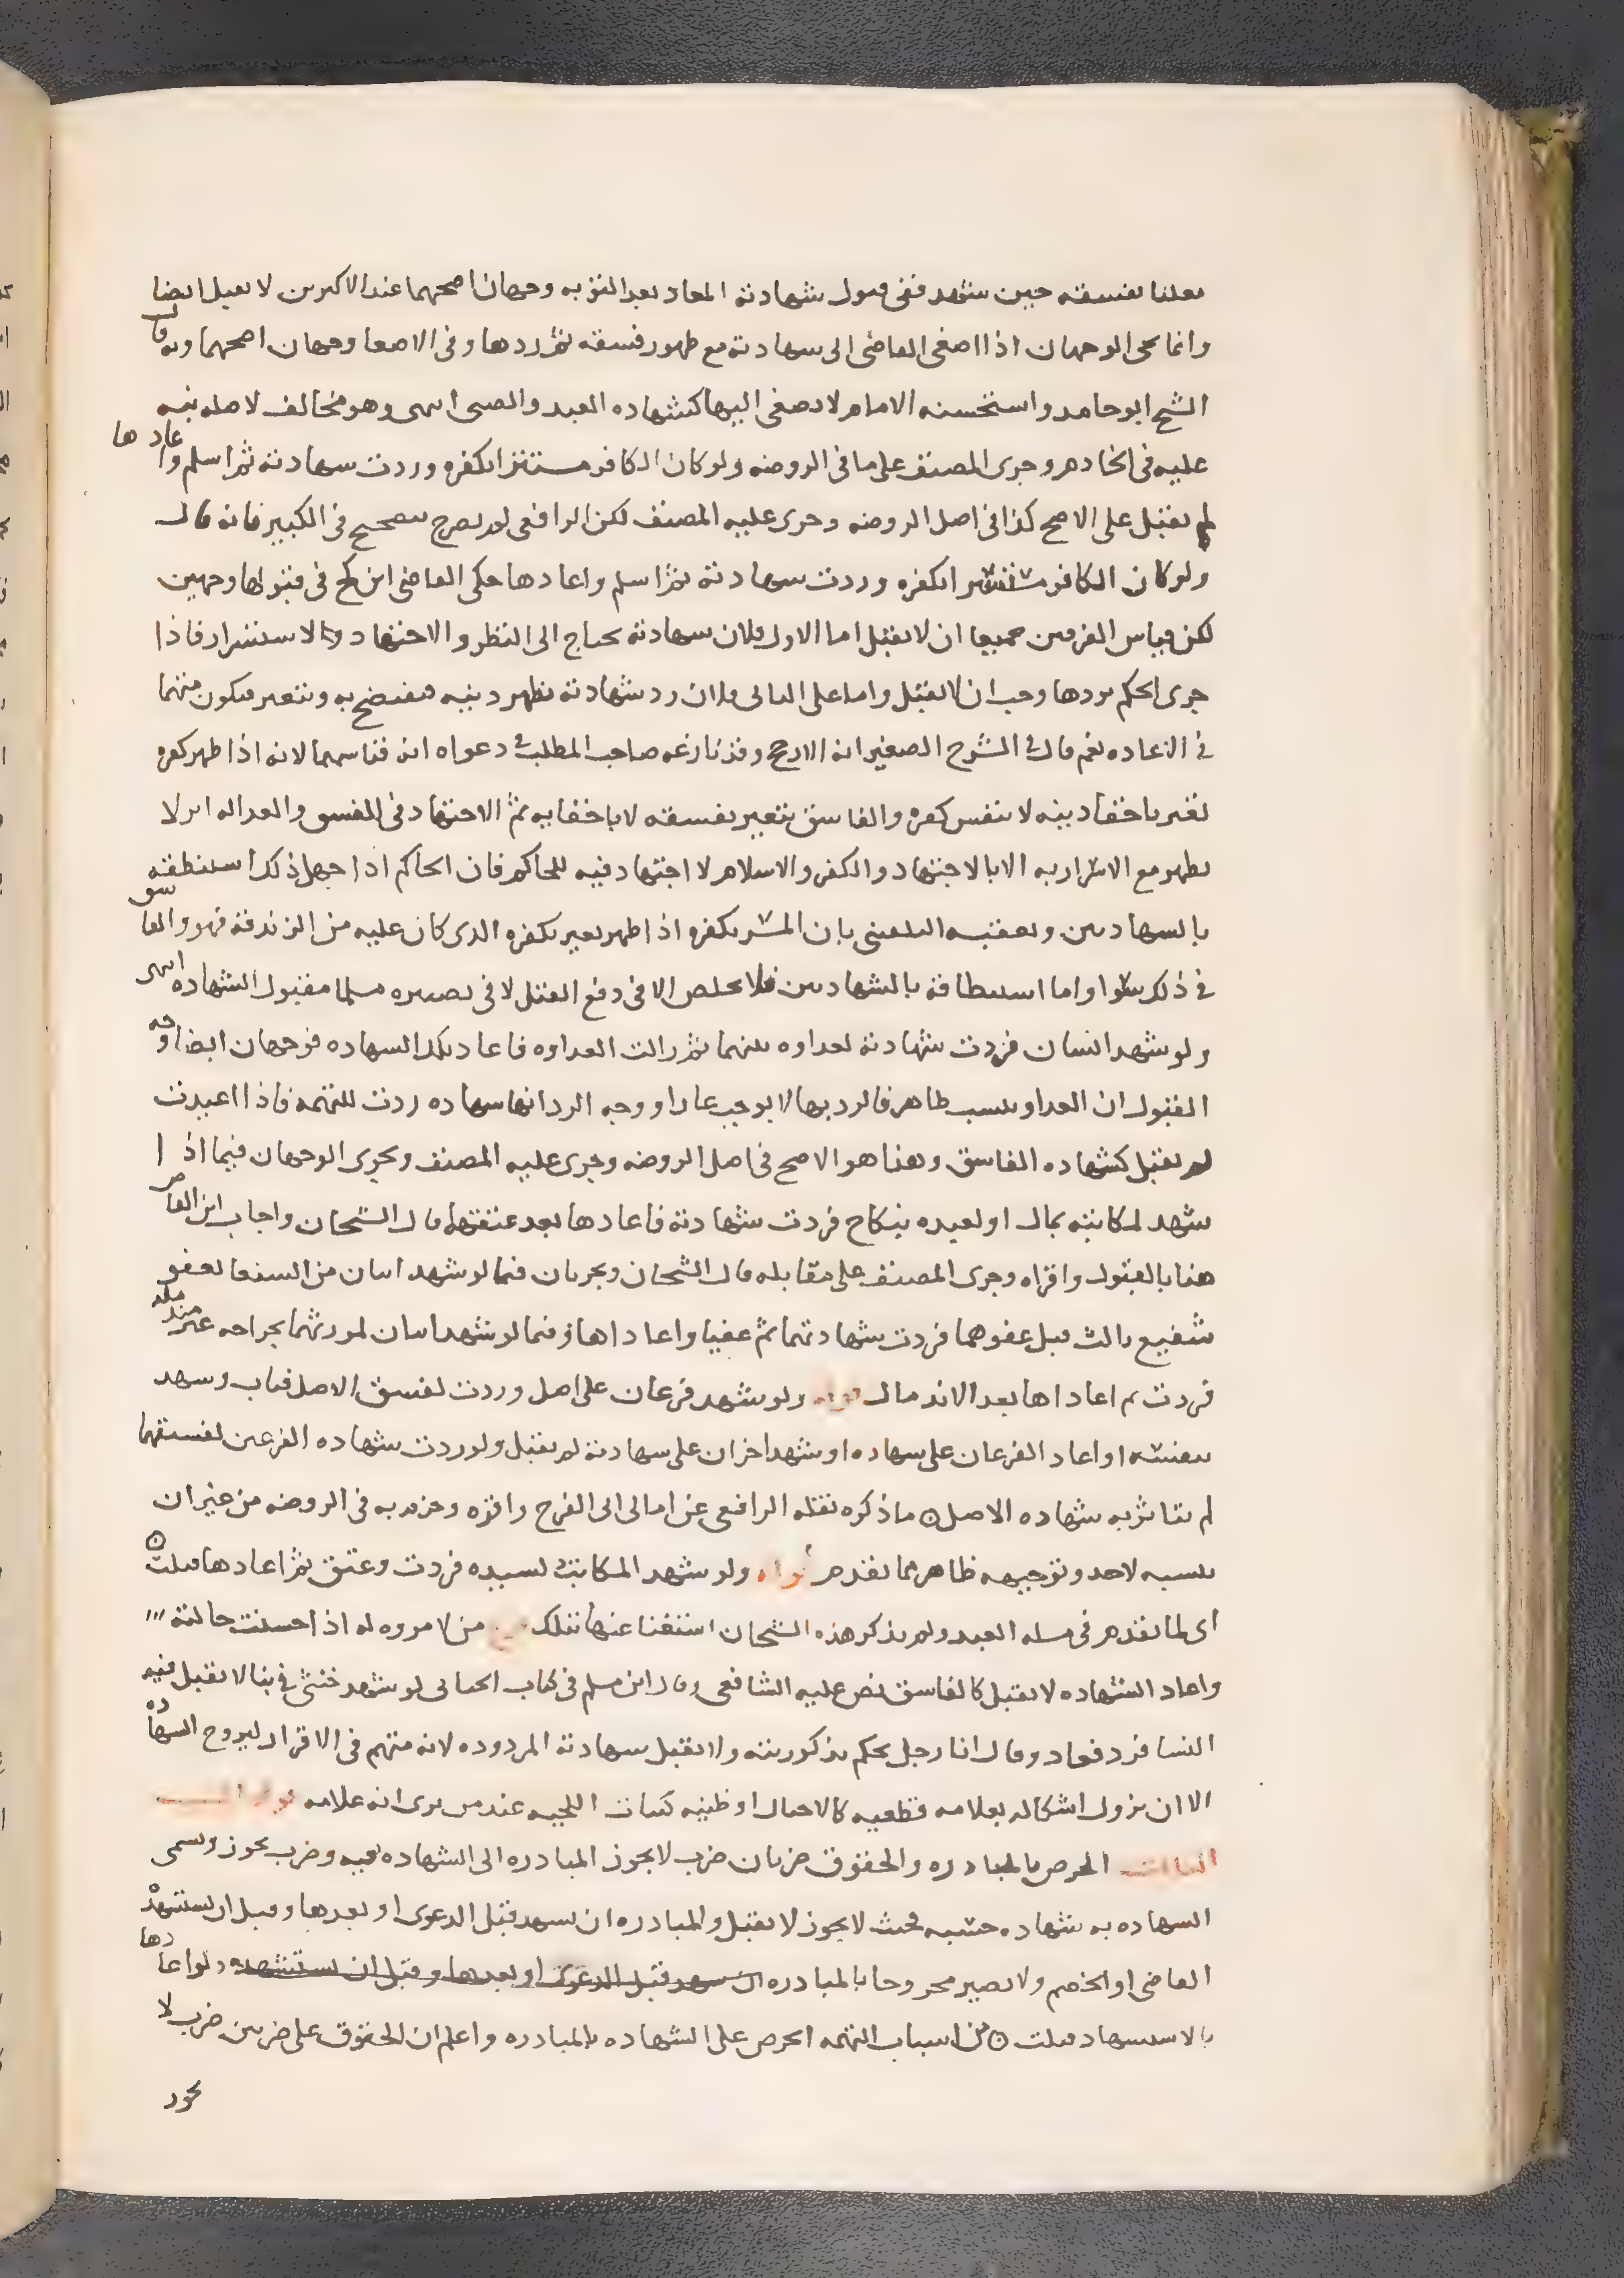 معلنا بفسقه حين شهد ففى قبول شهادته المعاد بعد التوبه وجهان اصحهما عند الاكثرين لا تقبل ايضا
وانما يجى الوجهان اذا اصغى القاضى الى شهادته مع ظهور فسقه ثم ردها وفى الاصغا وجهان اصحهما وبه قال
الشيخ ابو حامد واستحسنه الامام لا يصغى اليها كشهاده العبد والصبى انتهى وهو مخالف لاصله نبه
عليه فى الخادم وجرى المصنف على ما فى الروضه ولو كان الكافر مستترا بكفره وردت شهادته ثم اسلم واعادها
لم تقبل على الاصح كذا فى اصل الروضه وجرى عليه المصنف لكن الرافعى لم يصرح بتصحيح فى الكبير فانه قال
ولو كان الكافر مستترا بكفره وردت شهادته ثم اسلم واعادها حكى القاضى ابن كج فى قبولها وجهين
لكن قياس الفرقين جميعا ان لا تقبل اما الاول فلان شهادته تحتاج الى النظر والاجتهاد والاستسرار فاذا
جرى الحكم بردها وجب ان لا تقبل واما على الثانى فلان رد شهادته يظهر دينه فيفتضح به ويتعير فيكون متهما
فى الاعاده نعم قال فى الشرح الصغير انه الارجح وقد نازعه صاحب المطلب فى دعواه انه قياسهما لانه اذا ظهر كفره
تغير باخفا دينه لا بنفس كفره والفاسق يتعير بفسقه لا باخفايه ثم الاجتهاد فى الفسق والعداله اثر لا
يظهر مع الاسرار به الا بالاجتهاد والكفر والاسلام لا اجتهاد فيه للحاكم فان الحاكم اذا جهل ذلك استنطقه
بالشهادتين وتعقبه البلقينى بان المسر بكفره اذا ظهر يعير بكفره الذى كان عليه من الزندقه فهو والفاسق
فى ذلك سوا واما استنطاقه بالشهادتين فلا يخلص الا فى دفع القتل لا فى تصييره مسلما مقبول الشهاده انتهى
ولو شهد انسان فردت شهادته لعداوه بينهما ثم زالت العداوه فاعاد تلك الشهاده فوجهان ايضا وجه
القبول ان العداوه سبب ظاهر فالرد بها لا يوجب عارا ووجه الرد انها شهاده ردت للتهمه فاذا اعيدت
لم تقبل كشهاده الفاسق وهذا هو الاصح فى اصل الروضه وجرى عليه المصنف ويجرى الوجهان فيما اذا
شهد لمكاتبه بمال او لعبده بنكاح فردت شهادته فاعادها بعد عتقهما قال الشيخان واجاب ابن القاص
هنا بالقبول واقراه وجرى المصنف على مقابله قال الشيخان ويجريان فيما لو شهد اثنان من الشفعا بعفو
شفيع ثالث قبل عفوهما فردت شهادتهما ثم عفيا واعاداها وفيما لو شهد اثنان لمورثهما بجراحه غير مندمله
فردت ثم اعاداها بعد الاندمال قوله ولو شهد فرعان على اصل وردت لفسق الاصل فتاب وشهد
بنفسه او اعاد الفرعان على شهاده او شهد اخران على شهادته لم تقبل ولو ردت شهاده الفرعين لفسقهما
لم يتاثر به شهاده الاصل ما ذكره نقله الرافعى عن امالى ابى الفرج واقره وجزم به فى الروضه من غير ان
ينسبه لاحد وتوجيهه ظاهر مما تقدم قوله ولو شهد المكاتب لسيده فردت وعتق ثم اعادها قبلت
اى لما تقدم فى مسله العبد ولم يذكر هذه الشيخان استغنا عنها بتلك من لا مروه له اذا احسنت حالته
واعاد الشهاده لا تقبل كالفاسق نص عليه الشافعى وقال ابن مسلم فى كتاب الخناثى لو شهد خنثى فى بنا لا تقبل فيه
النسا فرد فعاد وقال انا رجل يحكم بذكوريته ولا تقبل شهادته المردوده لانه متهم فى الاقرار ليروج الشهاده
الا ان يزول اشكاله بعلامه قطعيه كالاحبال او ظنيه كنبات اللحيه عند من يرى انه علامه قوله السبب
الثالث الحرص بالمبادره والحقوق ضربان ضرب لا يجوز المبادره الى الشهاده فيه وضرب يجوز وتسمى
الشهاده به شهاده حسبه فحيث لا يجوز لا تقبل والمبادره ان يشهد قبل الدعوى او بعدها وقبل ان يستشهد
القاضى او الخصم ولا يصير مجروحا بالمبادره ان يشهد قبل الدعوى او بعدها وقبل ان يستشهده ولو اعادها
بالاستشهاد قبلت من اسباب التهمه الحرص على الشهاده بالمبادره واعلم ان الحقوق على ضربين ضرب لا
يجوز